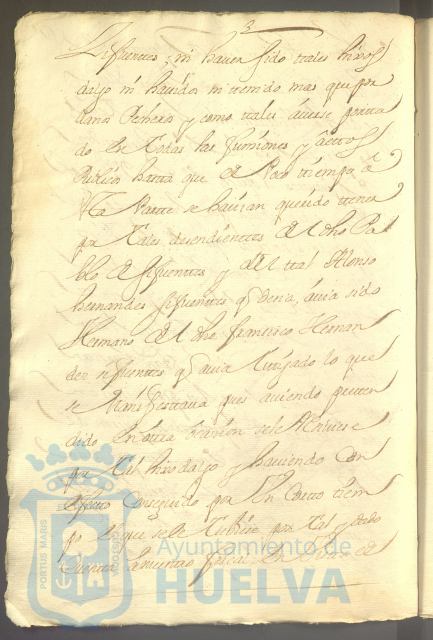 Sifuentes, ni haver sido tales hixos
dalgo ni havidos ni tenido mas que por
llanos Pecheros y como tales averse porta
do en todas las funciones y actos
Publicos hasta que de Poco tiempo a
esta Parte se havian querido tener
por tales desendientes del dho Pa
blo de Sifuentes y del tal Alonso
hernandes sifuentes q decia avia sido
Hermano del dho francisco Hernan
des sifuentes q avia litigado lo que
se Manifestava pues aviendo preten
dido en otra ocasion se le
por tal hixodalgo y haviendo con
efecto conseguido por un corto tiem
po el que se le tubiese por tal y dado
quenta a nuestro fiscal
PORTUS MARIS
Ayuntamiento de
HUELVA